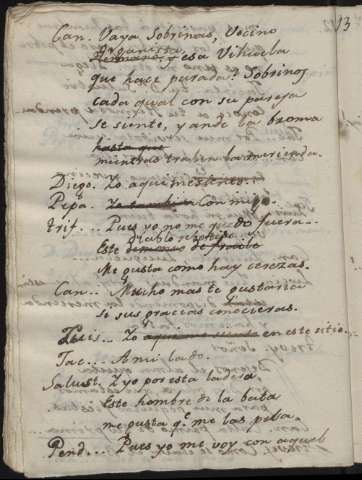 13
Can. Vaya Sobrinas, Vecino
Organista
hermano y esa Vihuela
que hace parada? Sobrinos
cada qual con su pareja
se siente, y ande la broma
hasta que
mientras traben la merienda.
Diego. Yo aqui me siento...
Pepa. Yo tambien Con migo.
Trif... Pues yo no me quedo fuera...
Este demonio de fraile
Me gusta como hay cerezas.
Can... Mucho mas te gustaria
si sus gracias conocieras.
Luis... Yo aqui me siento en este sitio...
Jac... A mi lado.
Salust. Y yo por esta ladera,
Este hombre de la bata
me gusta q.e me las pela.
Pend... Pues yo me voy con aquel